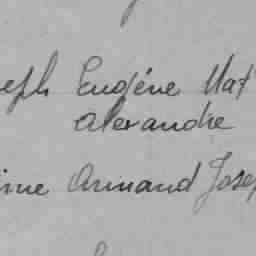 eph Eugéne Mat
alexandre
ine Armand Jose